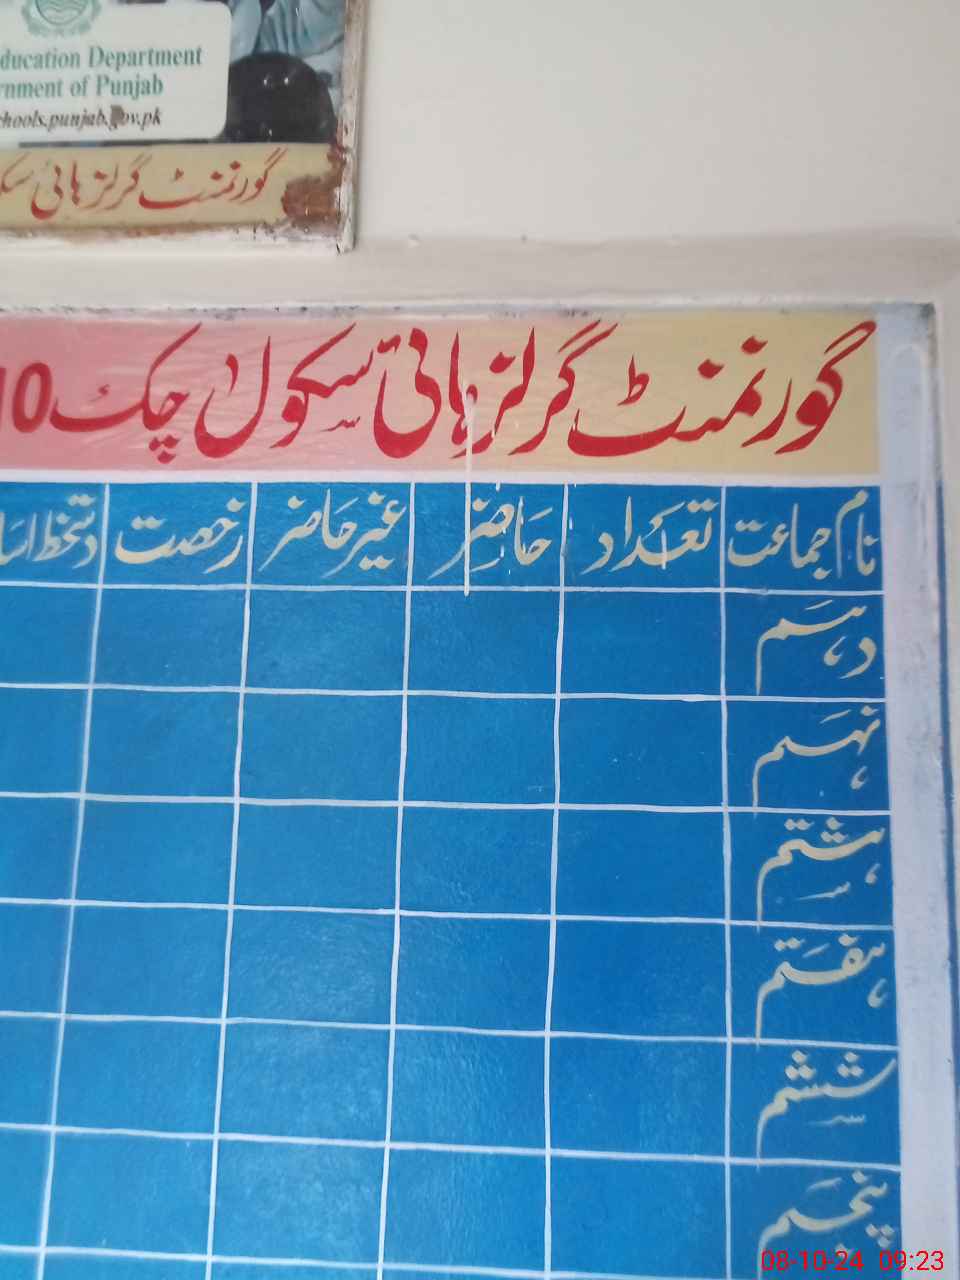 ducation Department
rnment of Punjab
hools.punjab.gov.pk
گورنمنٹ گرلز ہائی سک
گورنمنٹ گرلز ہائی سکول چک 10
نام جماعت تعداد حاضر غیر حاضر رخصت دستخط اسا
دہم
نہم
ہشتم
ہفتم
ششم
پنجم
08-10-24 09:23